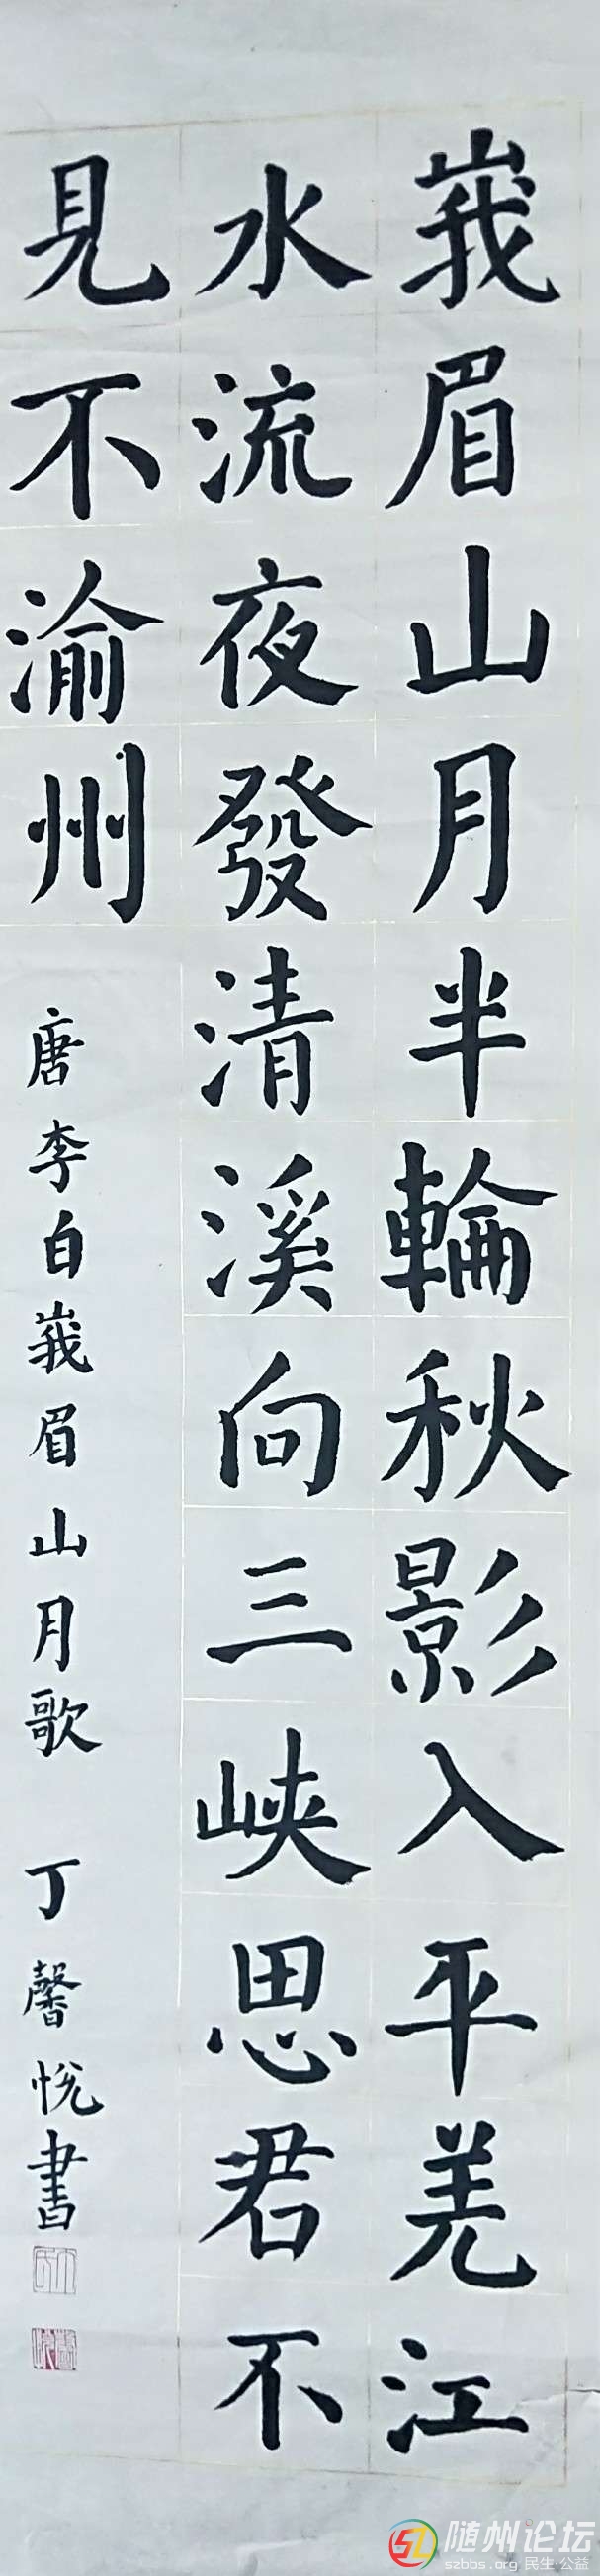 峩眉山月半輪秋影入平羌江
水流夜發清溪向三峽思君不
見不渝州 唐李白峩眉山月歌 丁馨悅書
随州论坛
szbbs.org 民生·公益